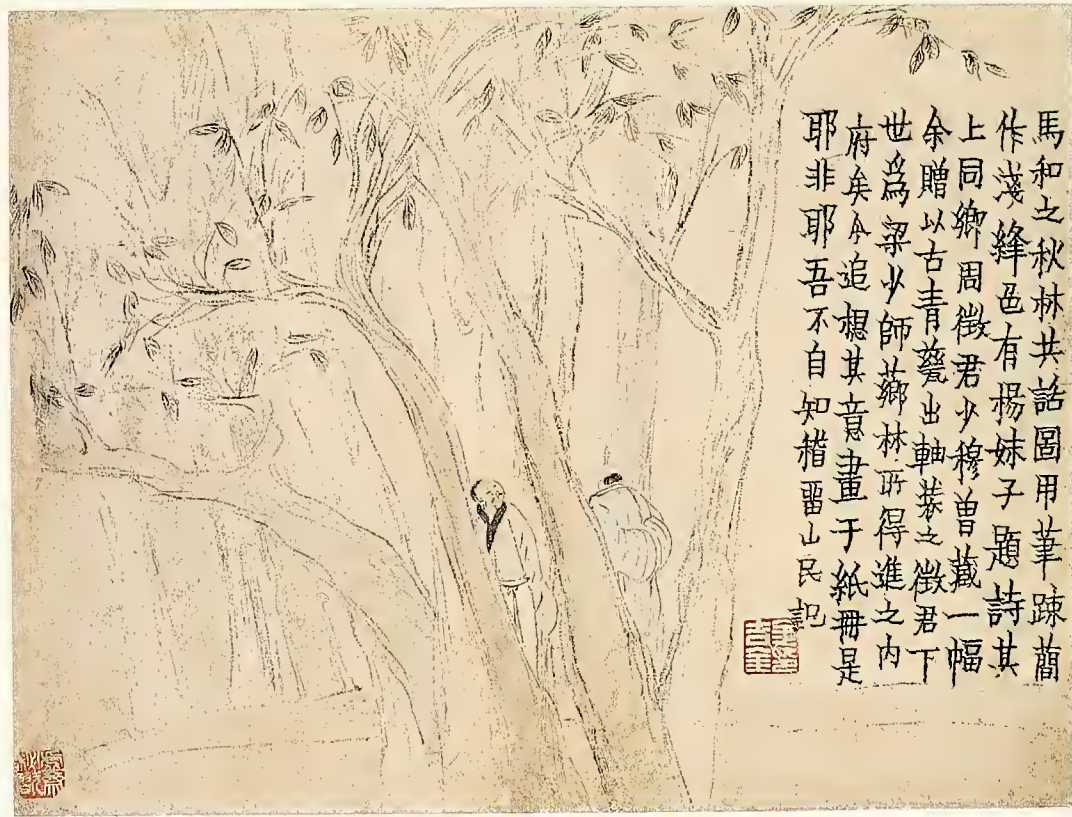 馬和之秋林共話圖用筆踈蕳
作淺絳色有楊妹子題詩其
上同鄉周徵君少穆曽藏一幅
余贈以古青甆出軸裝之徵君下
世爲梁少師薌林所得進之内
府矣今追想其意畫于紙冊是
耶非耶吾不自知稽留山民記